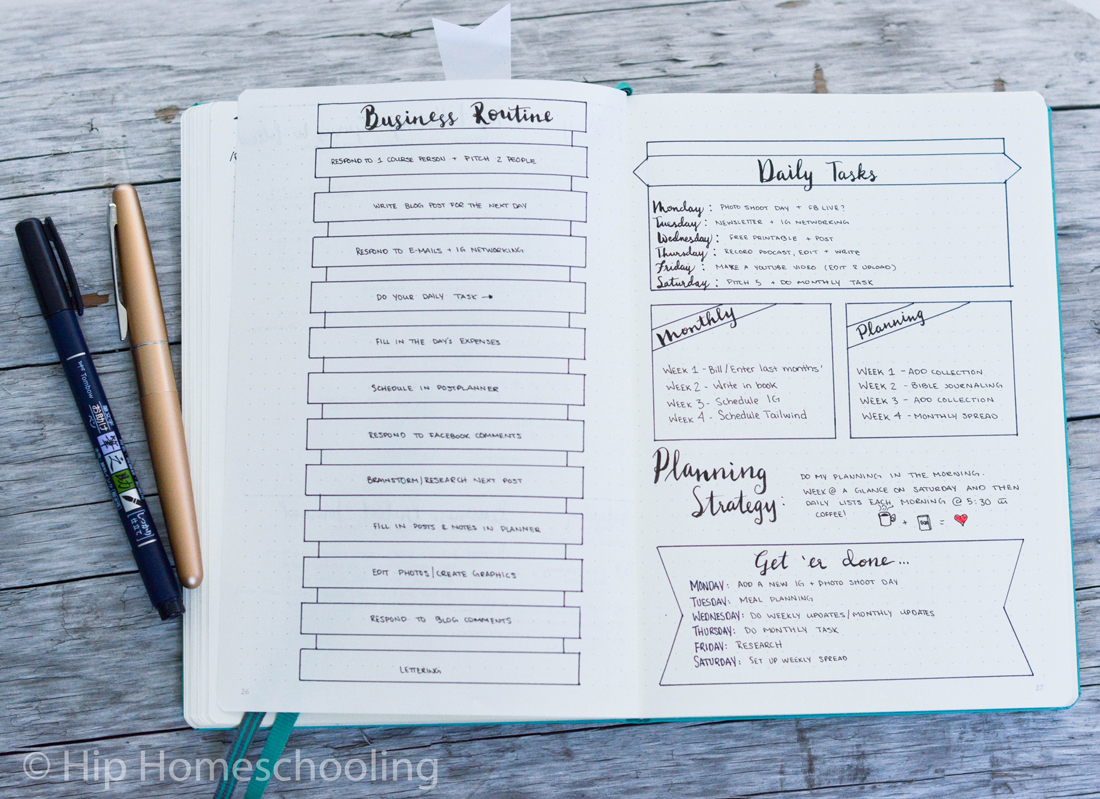 Business Routine
RESPOND TO 1 COURSE PERSON + PITCH 2 PEOPLE
WRITE BLOG POST FOR THE NEXT DAY
RESPOND TO E-MAILS + IG NETWORKING
DO YOUR DAILY TASK →
FILL IN THE DAY'S EXPENSES
SCHEDULE IN POSTPLANNER
RESPOND TO FACEBOOK COMMENTS
BRAINSTORM/RESEARCH NEXT POST
FILL IN POSTS & NOTES IN PLANNER
EDIT PHOTOS/CREATE GRAPHICS
RESPOND TO BLOG COMMENTS
LETTERING
26
Daily Tasks
Monday: PHOTO SHOOT DAY + FB LIVE?
Tuesday: NEWSLETTER + IG NETWORKING
Wednesday: FREE PRINTABLE + POST
Thursday: RECORD PODCAST, EDIT + WRITE
Friday: MAKE A YOUTUBE VIDEO (EDIT & UPLOAD)
Saturday: PITCH 5 + DO MONTHLY TASK
Monthly
WEEK 1 - Bill/Enter last months'
WEEK 2 - Write in book
WEEK 3 - Schedule IG
WEEK 4 - Schedule Tailwind
Planning
WEEK 1 - ADD COLLECTION
WEEK 2 - BIBLE JOURNALING
WEEK 3 - ADD COLLECTION
WEEK 4 - MONTHLY SPREAD
Planning
Strategy:
DO MY PLANNING IN THE MORNING.
WEEK @ A GLANCE ON SATURDAY AND THEN
DAILY LISTS EACH MORNING @ 5:30 w
COFFEE!
+ =
Get 'er done...
MONDAY: ADD A NEW IG + PHOTO SHOOT DAY
TUESDAY: MEAL PLANNING
WEDNESDAY: DO WEEKLY UPDATES/MONTHLY UPDATES
THURSDAY: DO MONTHLY TASK
FRIDAY: RESEARCH
SATURDAY: SET UP WEEKLY SPREAD
27
Tombow
© Hip Homeschooling